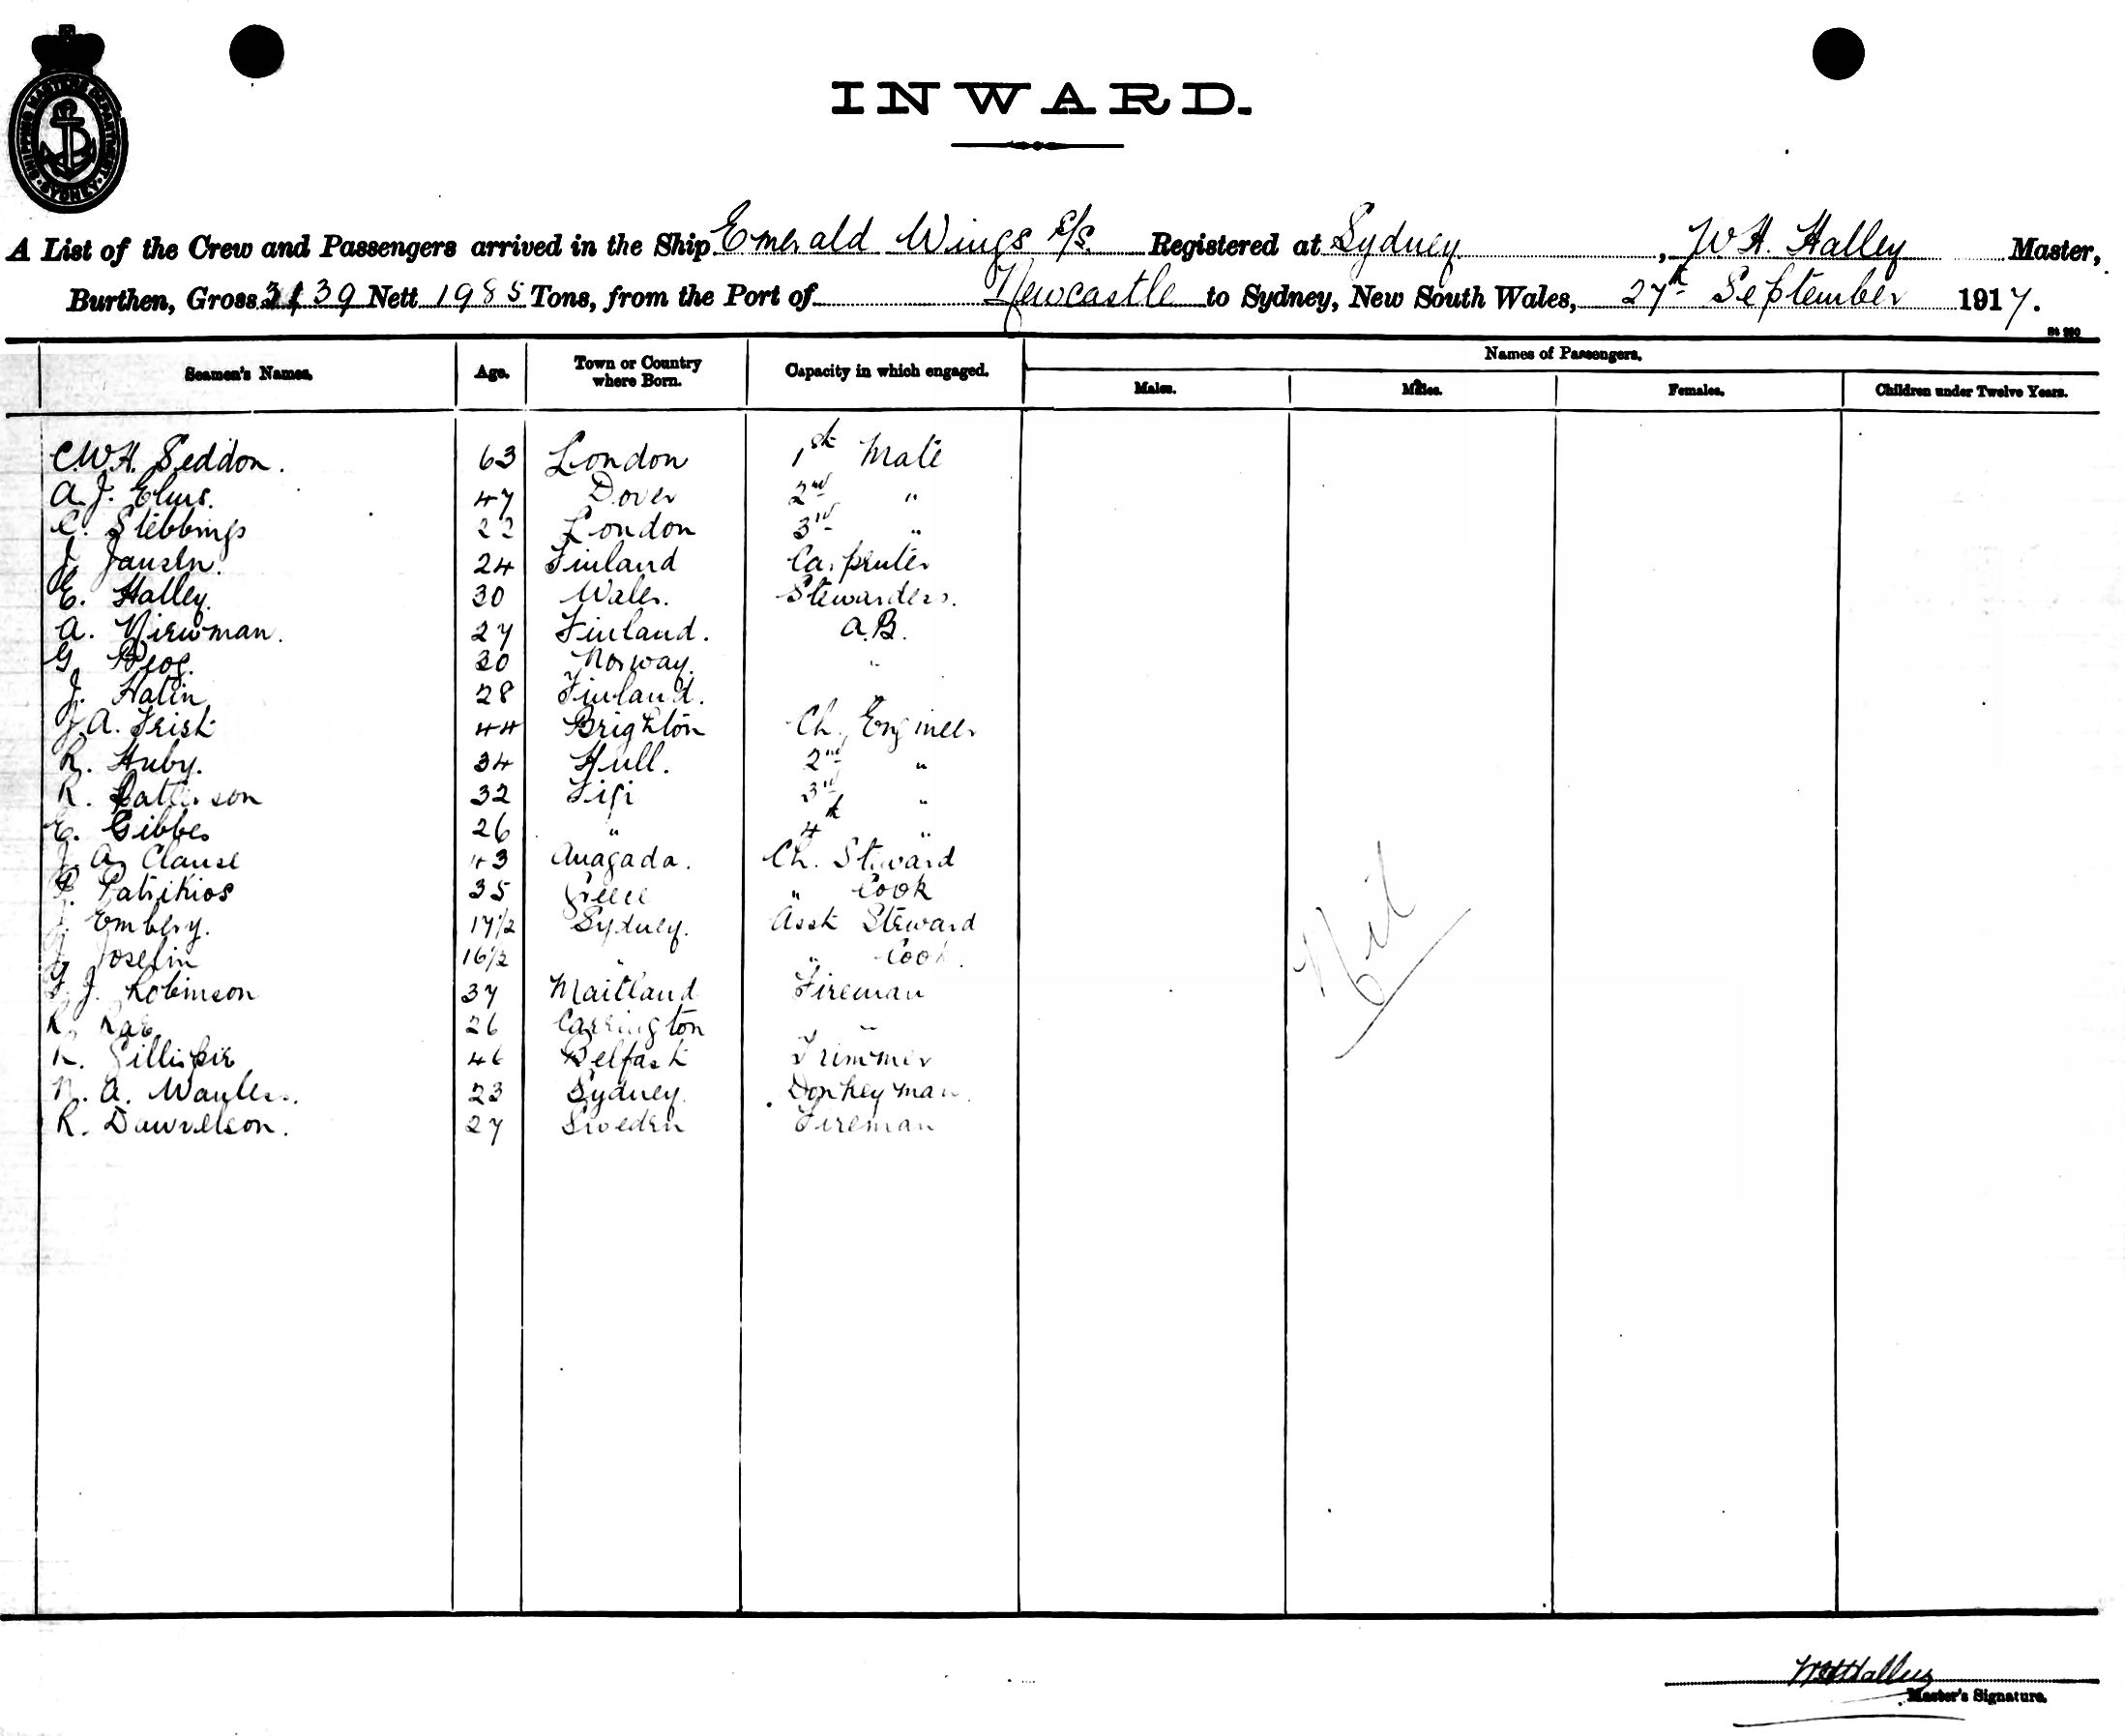 SHIPPING MASTER'S DEPARTMENT SYDNEY
INWARD.
A List of the Crew and Passengers arrived in the Ship Emerald Wings s/s. Registered at Sydney, W H. Halley Master,
Burthen, Gross 3139 Nett 1985 Tons, from the Port of Newcastle to Sydney, New South Wales, 27th September 1917.
Names of Passengers.
Seamen's Names. Age. Town or Country where Born. Capacity in which engaged. Males. Males. Females. Children under Twelve Years.
C.W.H. Seddon. 63 London 1st Mate
A. J. Elms. 47 Dover 2nd "
C. Stebbings 22 London 3rd "
J. Jansen. 24 Finland Carpenter
E. Halley. 30 Wales. Stewardess.
A. Niewman. 27 Finland. A.B.
G. 30 Norway. "
J. Halin 28 Finland. "
J. A. Frisk 44 Brighton Ch. Engineer
R. Huby. 34 Hull. 2nd "
R. Patterson 32 Fiji 3rd "
E. Gibbes 26 " 4th "
J. A. Clause 43 Anagada. Ch. Steward
P. Patrikios 35 Greece " Cook
J. Embery. 17 1/2 Sydney. Asst Steward
J. Joselin 16 1/2 " " Cook.
F. J. Robinson 37 Maitland Fireman
R. Rae 26 Carrington "
R. Gillispie 46 Belfast Trimmer
N. A. Wanless. 23 Sydney. Donkeyman.
R. 27 Sweden Fireman
Nil
WH Halley
Master's Signature.